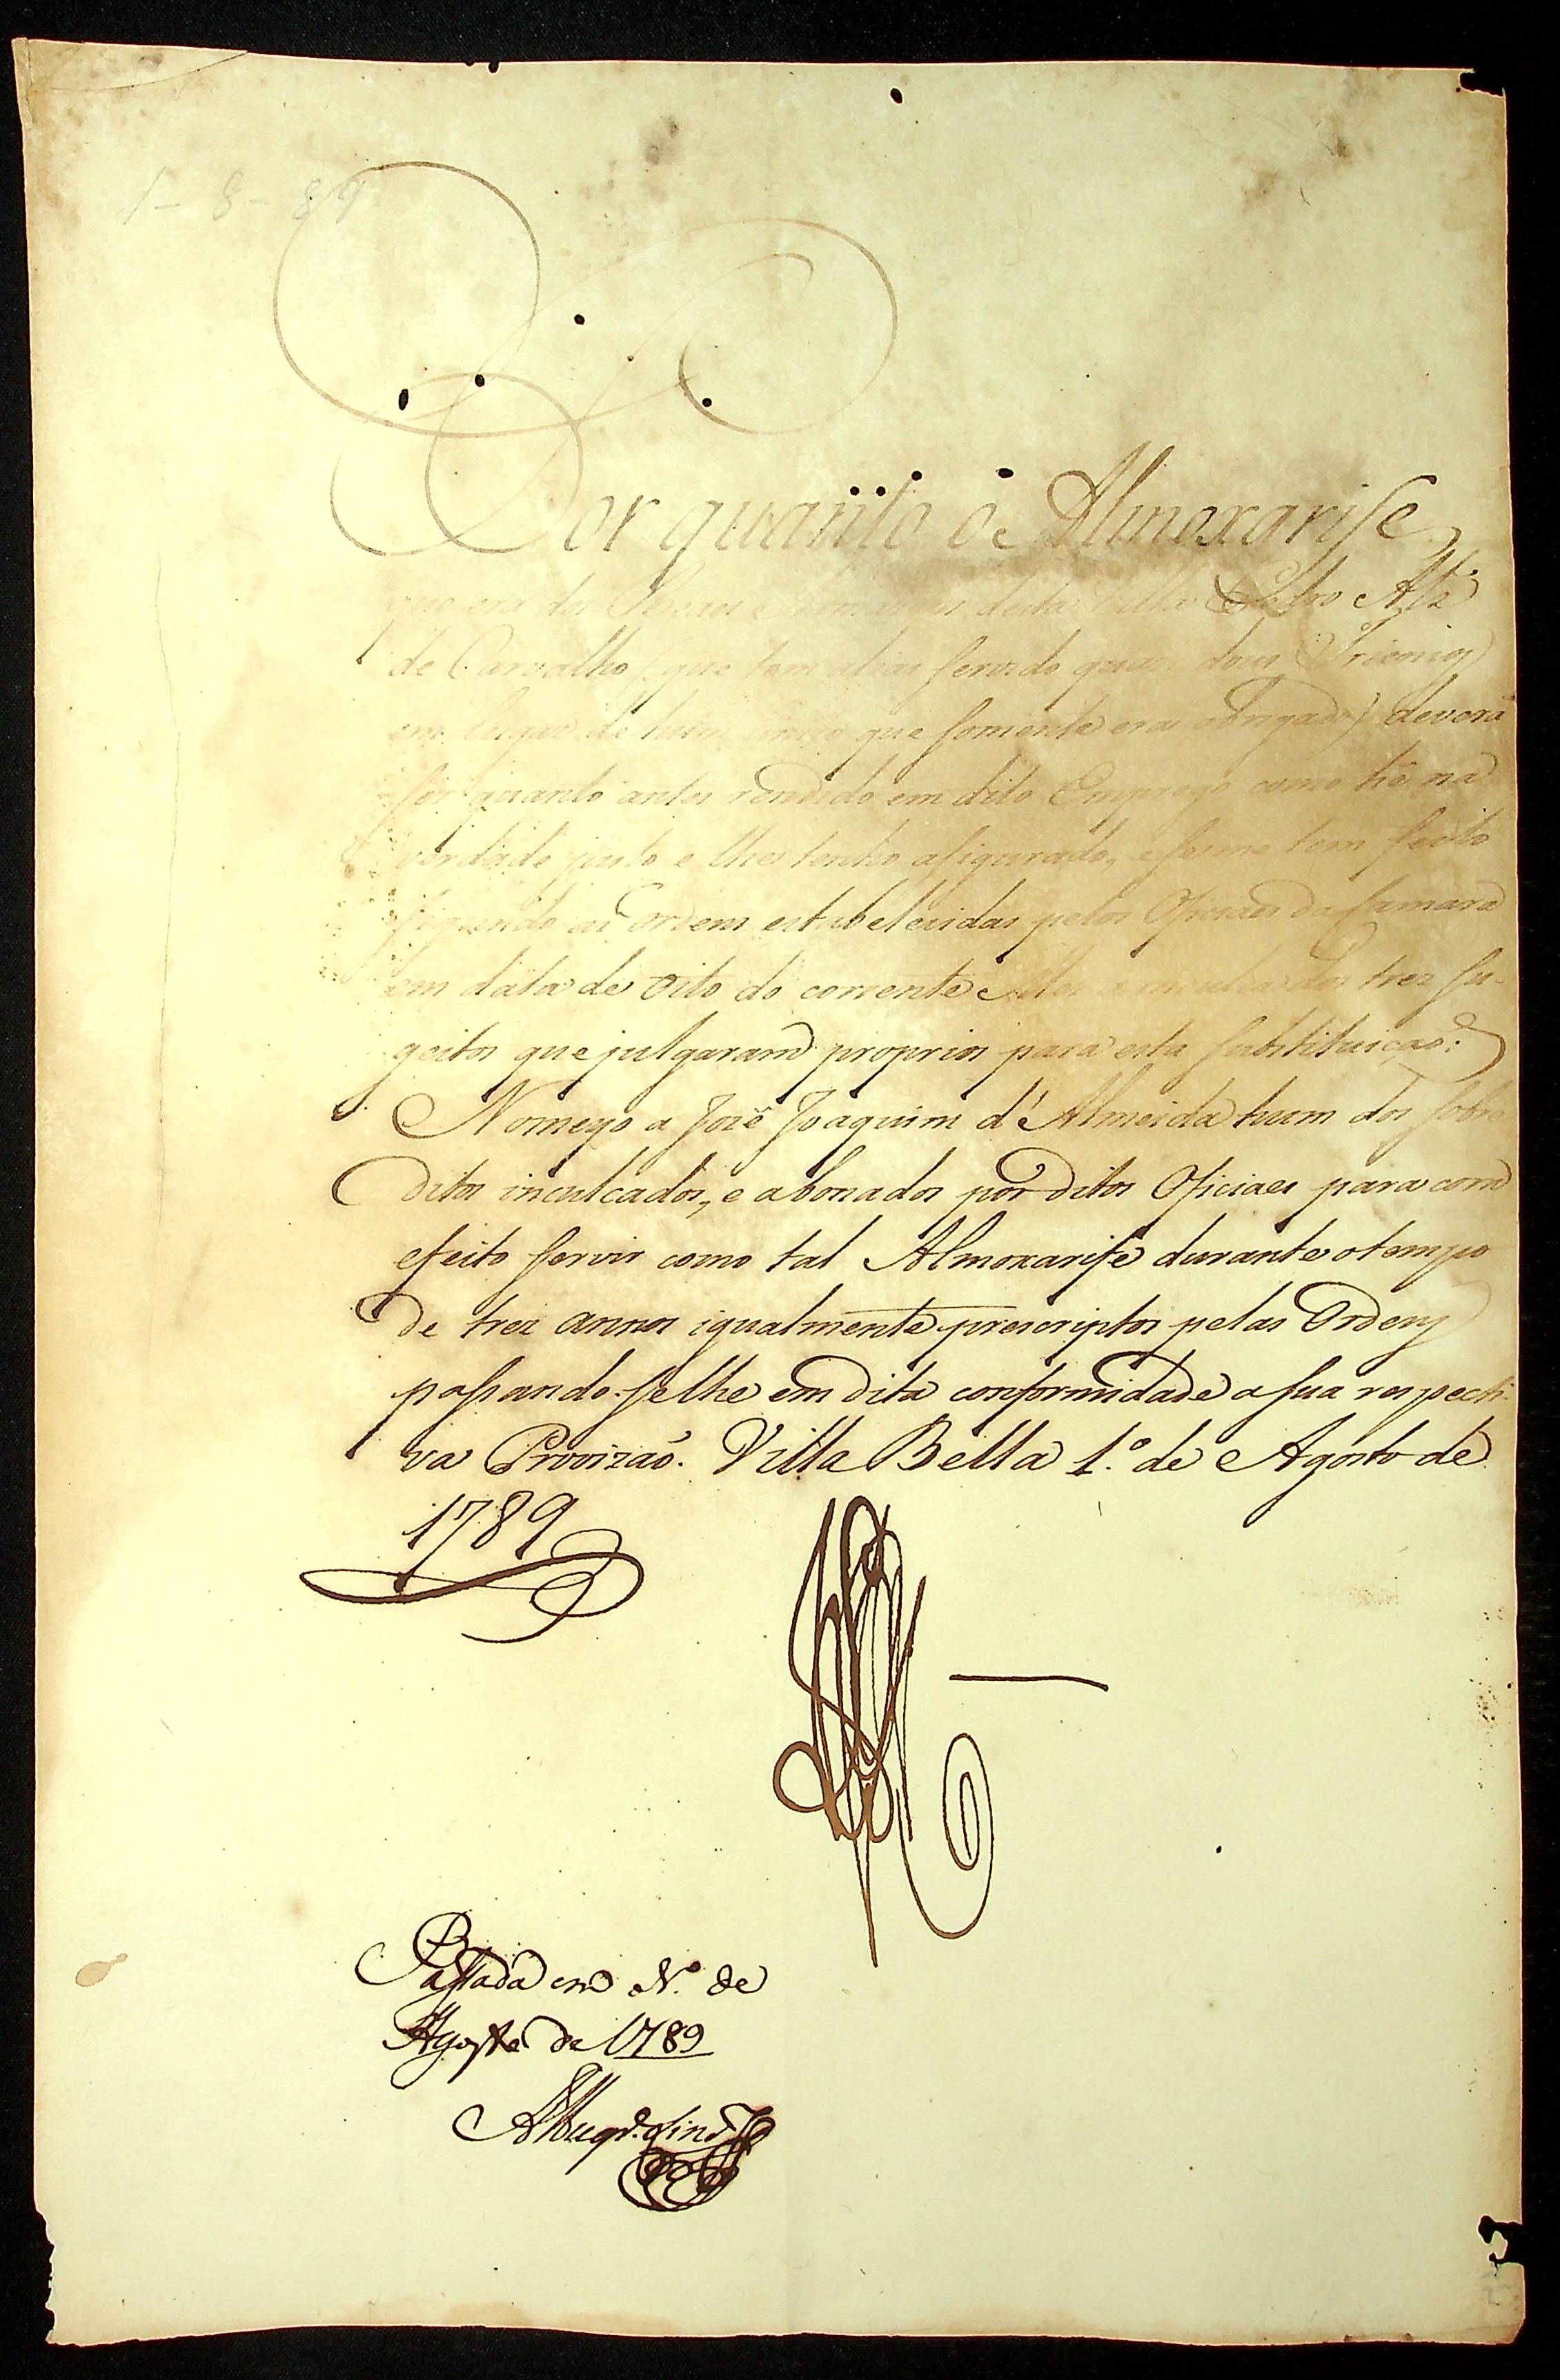 1-8-89
Por quanto o Almoxarife
que era dos desta Villa Pedro Alz'
de Carvalho (que tem alias servido quazi dous Trienios
em lugar de hum que somente era obrigado) deverá
ser quanto antes rendido em dito Emprego como hé na
verdade justo e lhes tenho afigurado, e se me tem feito
segundo as Ordens estabelecidas pelos Oficiaes da Camara
em data de oito do corrente dos trez su-
geitos que julgaram proprios para esta substituição:
Nomeyo a José Joaquim d'Almeida hum dos sobre
ditos inculcados, e abonados por ditos Oficiaes para com
efeito servir como tal Almoxarife durante o tempo
de trez annos igualmente prescriptos pelas Ordens
passando-selhe em dita conformidade a sua respecti-
va Provizaõ. Villa Bella 1.º de Agosto de
1789
Passada em N.º de
Agosto de 1789